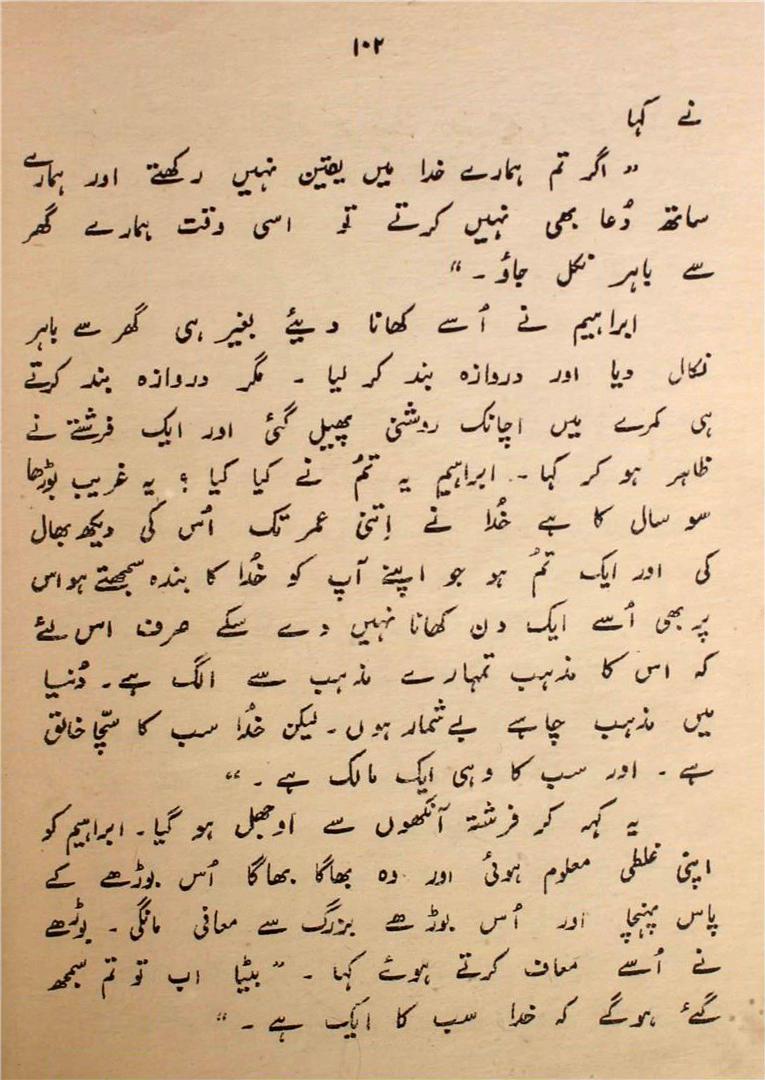 ۱۰۲
نے کہا
" اگر تم ہمارے خدا میں یقین نہیں رکھتے اور ہمارے
ساتھ دُعا بھی نہیں کرتے تو اسی وقت ہمارے گھر
سے باہر نکل جاؤ ۔ "
ابراہیم نے اُسے کھانا دیئے بغیر ہی گھر سے باہر
نکال دیا اور دروازہ بند کر لیا ۔ مگر دروازہ بند کرتے
ہی کمرے میں اچانک روشنی پھیل گئی اور ایک فرشتے نے
ظاہر ہو کر کہا ۔ ابراہیم یہ تمُ نے کیا کیا ؟ یہ غریب بوڑھا
سو سال کا ہے خُدا نے اِتنی عمر تک اُس کی دیکھ بھال
کی اور ایک تمُ ہو جو اپنے آپ کو خُدا کا بندہ سمجھتے ہو اس
پر بھی اُسے ایک دن کھانا نہیں دے سکے صرف اس لئے
کہ اس کا مذہب تمہارے مذہب سے الگ ہے ۔ دُنیا
میں مذہب چاہے بے شمار ہوں ۔ لیکن خُدا سب کا سچّا خالق
ہے ۔ اور سب کا وہی ایک مالک ہے ۔ "
یہ کہہ کر فرشتہ آنکھوں سے اوجھل ہو گیا ۔ ابراہیم کو
اپنی غلطی معلوم ہوئی اور وہ بھاگا بھاگا اُس بوڑھے کے
پاس پہنچا اور اُس بوڑھے بزرگ سے معافی مانگی ۔ بوڑھے
نے اُسے معاف کرتے ہوئے کہا ۔ " بیٹا اب تو تم سمجھ
گئے ہوگے کہ خدا سب کا ایک ہے ۔ "